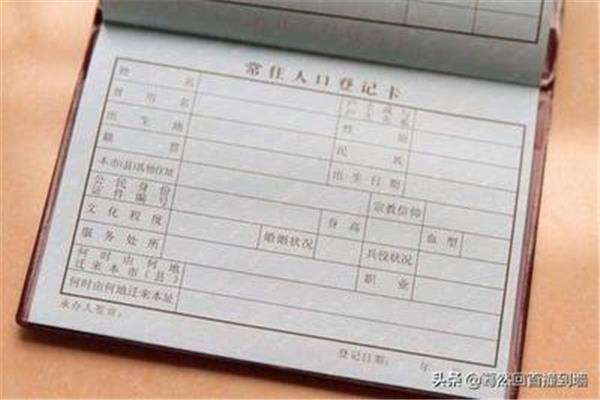 常住人口登记卡
姓 名
曾 用 名 性 别
出 生 地 民 族
籍 贯 出生日期
本市(县)其他住址 宗教信仰
公民身份
证件编号 身高 血型
文化程度 婚姻状况 兵役状况
服务处所 职业
何时由何地
迁来本市(县)
何时由何地迁来本址
承办人签章:
登记日期: 年
头条 @